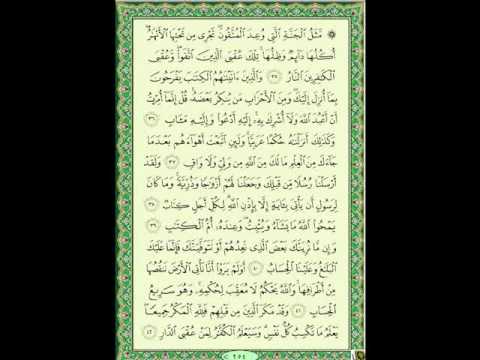 ۞ مَّثَلُ الْجَنَّةِ الَّتِي وُعِدَ الْمُتَّقُونَ ۖ تَجْرِي مِن تَحْتِهَا الْأَنْهَٰرُ ۖ
أُكُلُهَا دَآئِمٌ وَظِلُّهَا ۚ تِلْكَ عُقْبَى الَّذِينَ اتَّقَوا ۖ وَّعُقْبَى
الْكَٰفِرِينَ النَّارُ ٣٥ وَالَّذِينَ ءَاتَيْنَٰهُمُ الْكِتَٰبَ يَفْرَحُونَ
بِمَآ أُنزِلَ إِلَيْكَ ۖ وَمِنَ الْأَحْزَابِ مَن يُنكِرُ بَعْضَهُ ۚ قُلْ إِنَّمَآ أُمِرْتُ
أَنْ أَعْبُدَ اللَّهَ وَلَآ أُشْرِكَ بِهِ ۚ إِلَيْهِ أَدْعُوا وَإِلَيْهِ مَـَٔابِ ٣٦
وَكَذَٰلِكَ أَنزَلْنَٰهُ حُكْمًا عَرَبِيًّا ۚ وَلَئِنِ اتَّبَعْتَ أَهْوَآءَهُم بَعْدَمَا
جَآءَكَ مِنَ الْعِلْمِ مَا لَكَ مِنَ اللَّهِ مِن وَلِيٍّ وَلَا وَاقٍ ٣٧ وَلَقَدْ
أَرْسَلْنَا رُسُلًا مِّن قَبْلِكَ وَجَعَلْنَا لَهُمْ أَزْوَٰجًا وَذُرِّيَّةً ۚ وَمَا كَانَ
لِرَسُولٍ أَن يَأْتِيَ بِـَٔايَةٍ إِلَّا بِإِذْنِ اللَّهِ ۗ لِكُلِّ أَجَلٍ كِتَابٌ ٣٨
يَمْحُوا اللَّهُ مَا يَشَآءُ وَيُثْبِتُ ۖ وَعِندَهُ أُمُّ الْكِتَٰبِ ٣٩
وَإِن مَّا نُرِيَنَّكَ بَعْضَ الَّذِي نَعِدُهُمْ أَوْ نَتَوَفَّيَنَّكَ فَإِنَّمَا عَلَيْكَ
الْبَلَٰغُ وَعَلَيْنَا الْحِسَابُ ٤٠ أَوَلَمْ يَرَوْا أَنَّا نَأْتِي الْأَرْضَ نَنقُصُهَا
مِنْ أَطْرَافِهَا ۚ وَاللَّهُ يَحْكُمُ لَا مُعَقِّبَ لِحُكْمِهِ ۚ وَهُوَ سَرِيعُ
الْحِسَابِ ٤١ وَقَدْ مَكَرَ الَّذِينَ مِن قَبْلِهِمْ فَلِلَّهِ الْمَكْرُ جَمِيعًا ۖ
يَعْلَمُ مَا تَكْسِبُ كُلُّ نَفْسٍ ۗ وَسَيَعْلَمُ الْكُفَّٰرُ لِمَنْ عُقْبَى الدَّارِ ٤٢
٢٥٤